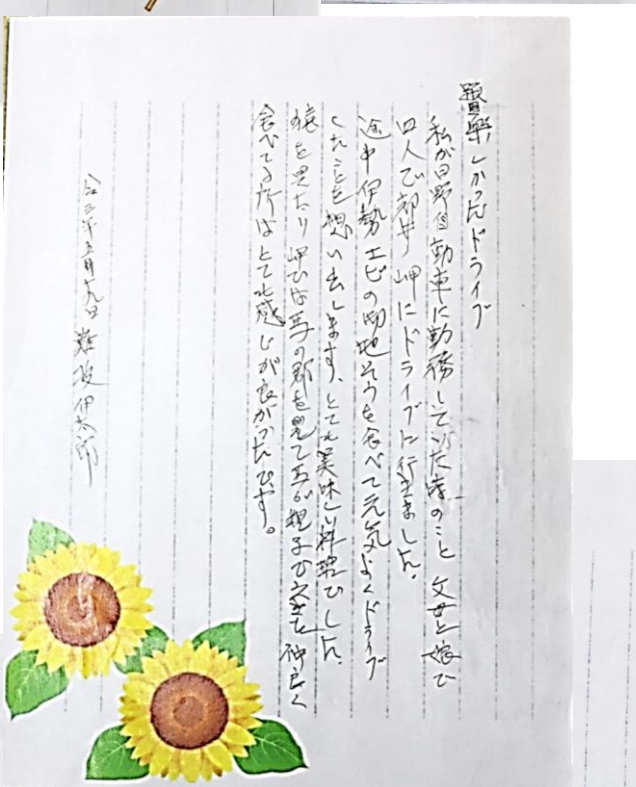 題 楽しかったドライブ
私が日野自動車に勤務していた時のこと 父母と娘で
四人で都井ノ岬にドライブに行きました。
途中伊勢エビの御地そうを食べて元気よくドライブ
したことを想い出します、とても美味しい料理でした。
猿を見たり岬では馬の群を見て馬が親子で草を仲良く
食べてる所はとても感じが良かったです。
令三年五月九日 難波伊太郎